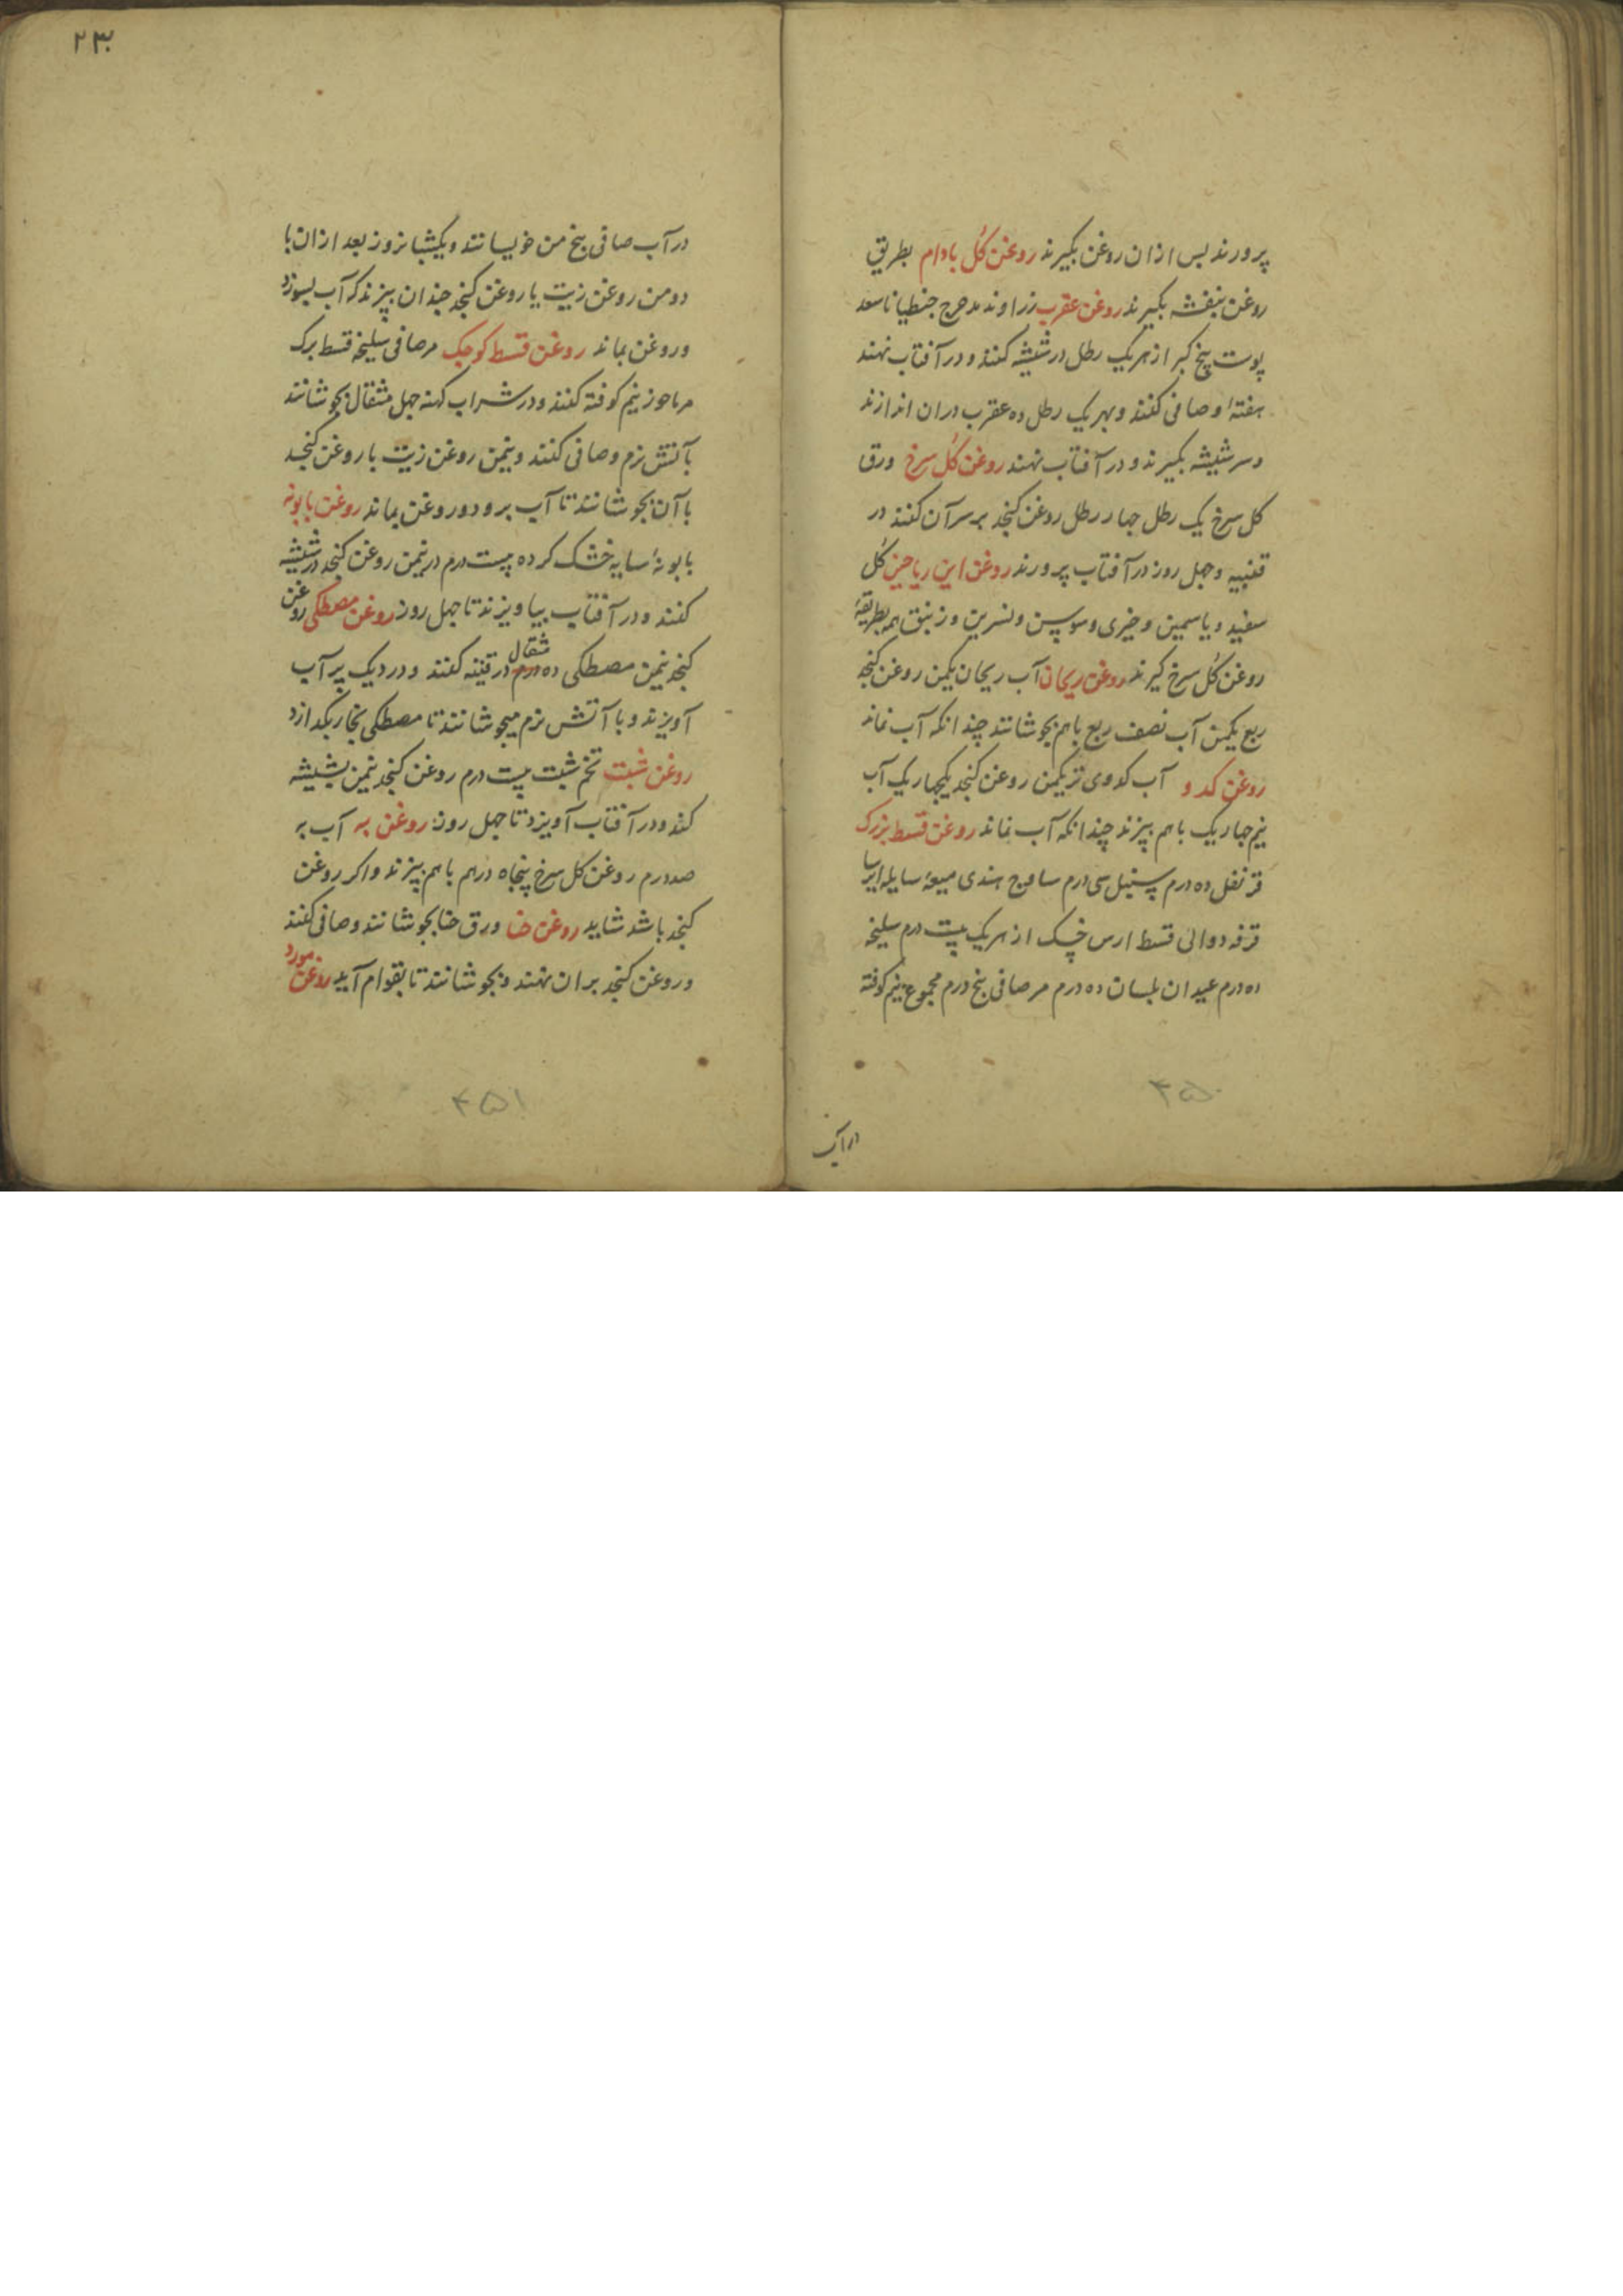 پرورند پس ازان روغن بکیرند روغن کل بادام بطریق
روغن بنفشه بکیرند روغن عقرب زراوند مدحرج جنطیانا سعد
پوست بیخ کبر از هریک رطل درشیشه کنند و در آفتاب نهند
هفتهٔ و صافی کنند و بهر یک رطل ده عقرب دران اندازند
و سر شیشه بکیرند و در آفتاب نهند روغن کل سرخ ورق
کل سرخ یک رطل چهار رطل روغن کنجد بر سر آن کنند در
قنینه و چهل روز در آفتاب پرورند روغن این ریاحین کل
سفید و یاسمین و خیری و سوسن و نسرین و زنبق هم بطریقهٔ
روغن کل سرخ کیرند روغن ریحان آب ریحان یکمن روغن کنجد
ربع یکمن آب نصف ربع باهم بجوشانند چندانکه آب نماند
روغن کدو آب کدوی تر یکمن روغن کنجد یکچهاریک آب
نیم چهاریک باهم بپزند چندانکه آب نماند روغن قسط بزرک
قرنفل ده درم سنبل سی درم ساذج هندی میعهٔ سایله ایرسا
قرفه دوالی قسط ارس خشک از هریک بیست درم سلیخه
ده درم عیدان بلسان ده درم مرصافی پنج درم مجموع نیم کوفته
در آب
۴۵۰
۲۳۰
در آب صافی پنج من خویسانند و یکشبانروز بعد ازان با
دو من روغن زیت یا روغن کنجد چندان بپزند که آب بسوزد
و روغن بماند روغن قسط کوچک مرصافی سلیخه قسط برک
مرماحوز نیم کوفته کنند و در شراب کهنه چهل مثقال بجوشانند
بآتش نرم و صافی کنند و نیمن روغن زیت یا روغن کنجد
با آن بجوشانند تا آب برود و روغن بماند روغن بابونه
بابونهٔ سایه خشک کرده بیست درم در نیمن روغن کنجد در شیشه
کنند و در آفتاب بیاویزند تا چهل روز روغن مصطکی روغن
کنجد نیمن مصطکی ده درم مثقال در قنینه کنند و در دیک پر آب
آویزند و با آتش نرم میجوشانند تا مصطکی بخار بکدازد
روغن شبت تخم شبت بیست درم روغن کنجد نیمن بشیشه
کند و در آفتاب آویزد تا چهل روز روغن به آب به
صد درم روغن کل سرخ پنجاه درهم باهم بپزند و اکر روغن
کنجد باشد شاید روغن حنا ورق حنا بجوشانند و صافی کنند
و روغن کنجد بران نهند و بجوشانند تا بقوام آید روغن مورد
۴۵۱